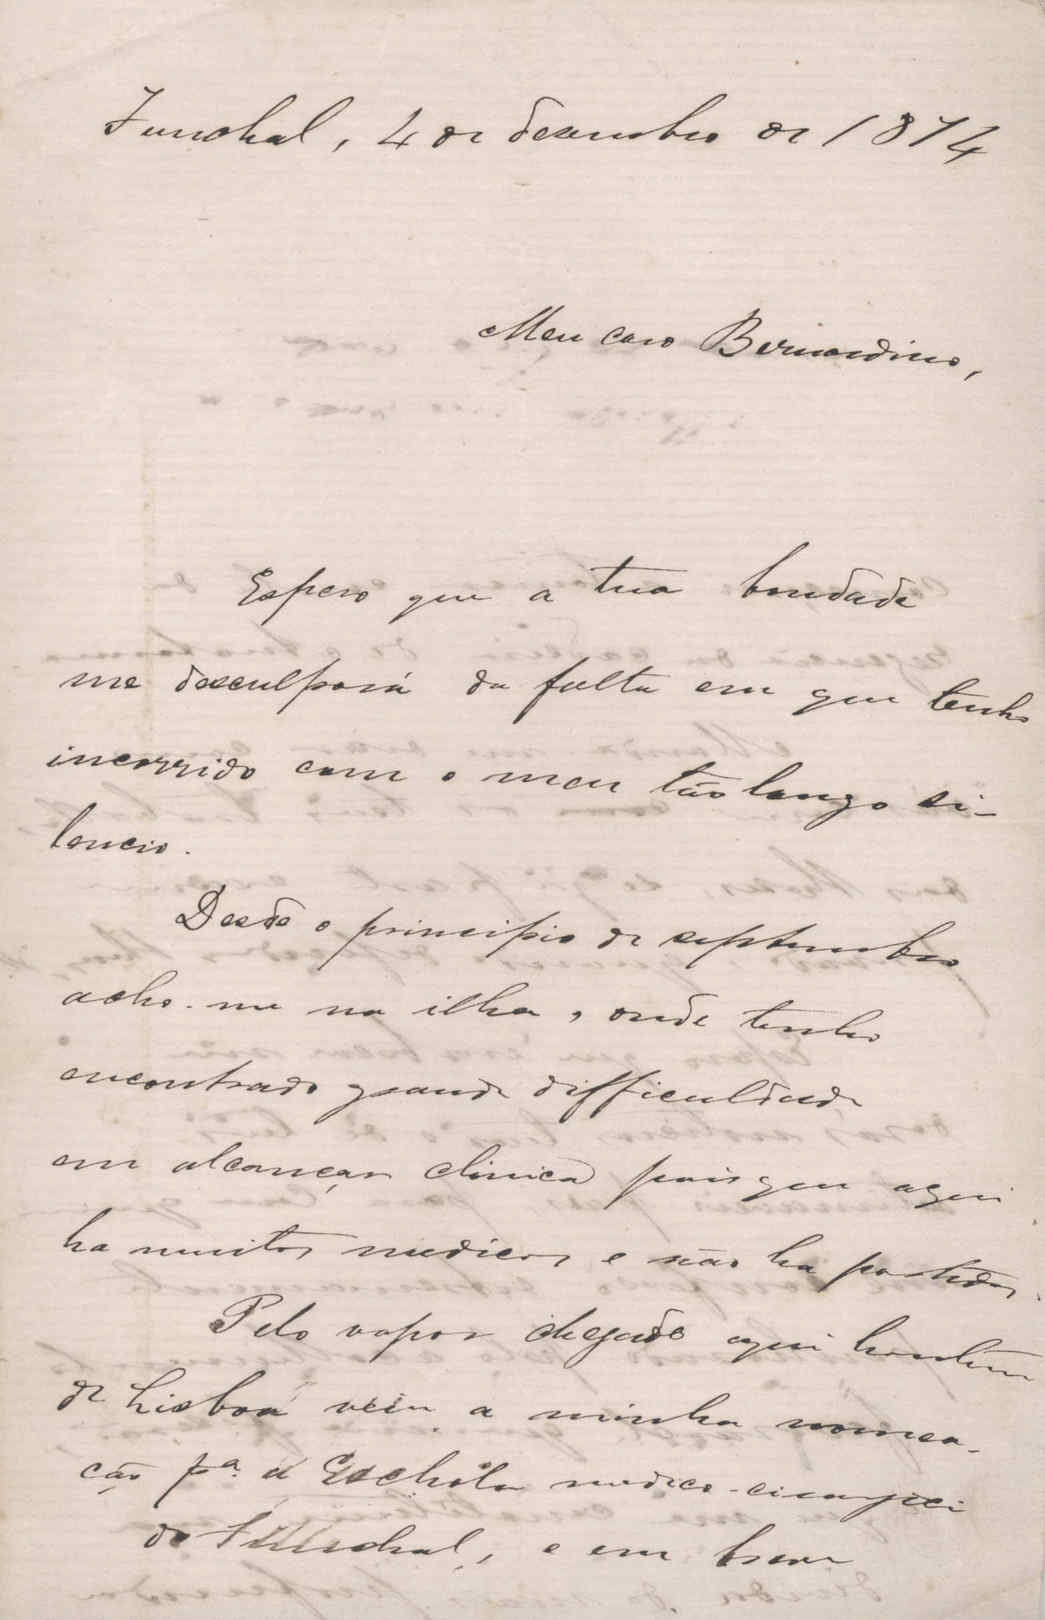 Funchal, 4 de dezembro de 1874
Meu caro Bernardino,
Espero que a tua bondade
me desculpará da falta em que tenho
incorrido com o meu tão longo si-
lencio.
Desde o principio de septembro
acho-me na ilha, onde tenho
encontrado grande difficuldade
em alcançar clinica pois que aqui
ha muitos medicos e não ha partidos.
Pelo vapor chegado aqui hontem
de Lisboa veiu a minha nomea-
ção pª a Eschola medico-cirurgica
do Funchal, e em breve